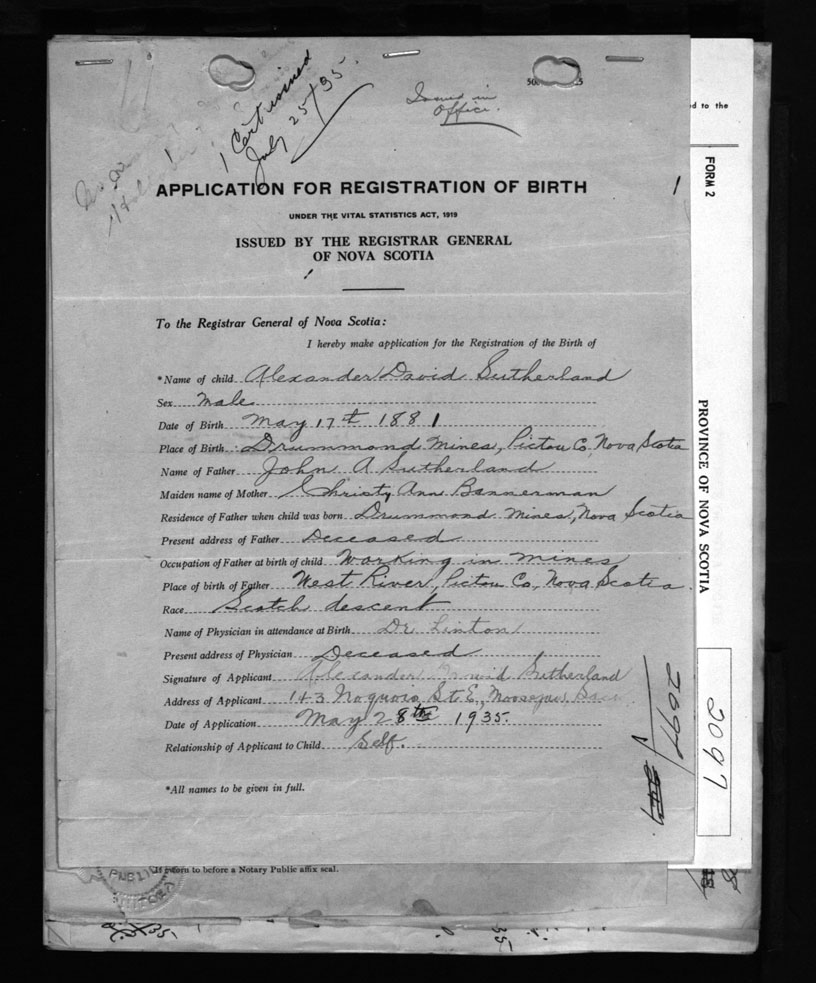 1 Cert issued
July 25/35.
Issued in
Office.
ed to the
FORM 2
APPLICATION FOR REGISTRATION OF BIRTH
UNDER THE VITAL STATISTICS ACT, 1919
ISSUED BY THE REGISTRAR GENERAL
OF NOVA SCOTIA
To the Registrar General of Nova Scotia:
I hereby make application for the Registration of the Birth of
*Name of child Alexander David Sutherland
Sex Male
Date of Birth May 17th 1881
Place of Birth Drummond Mines, Pictou Co, Nova Scotia
Name of Father John A Sutherland
Maiden name of Mother Christy Ann Bannerman
Residence of Father when child was born Drummond Mines, Nova Scotia
Present address of Father Deceased
Occupation of Father at birth of child Working in mines
Place of birth of Father West River, Pictou Co, Nova Scotia
Race Scotch descent
Name of Physician in attendance at Birth Dr Linton
Present address of Physician Deceased
Signature of Applicant Alexander David Sutherland
Address of Applicant 143 Iroquois St E, Moosejaw
Date of Application May 28th 1935.
Relationship of Applicant to Child Self.
*All names to be given in full.
PROVINCE OF NOVA SCOTIA
2097
2097
If sworn to before a Notary Public affix seal.
PUBLIC
35
35